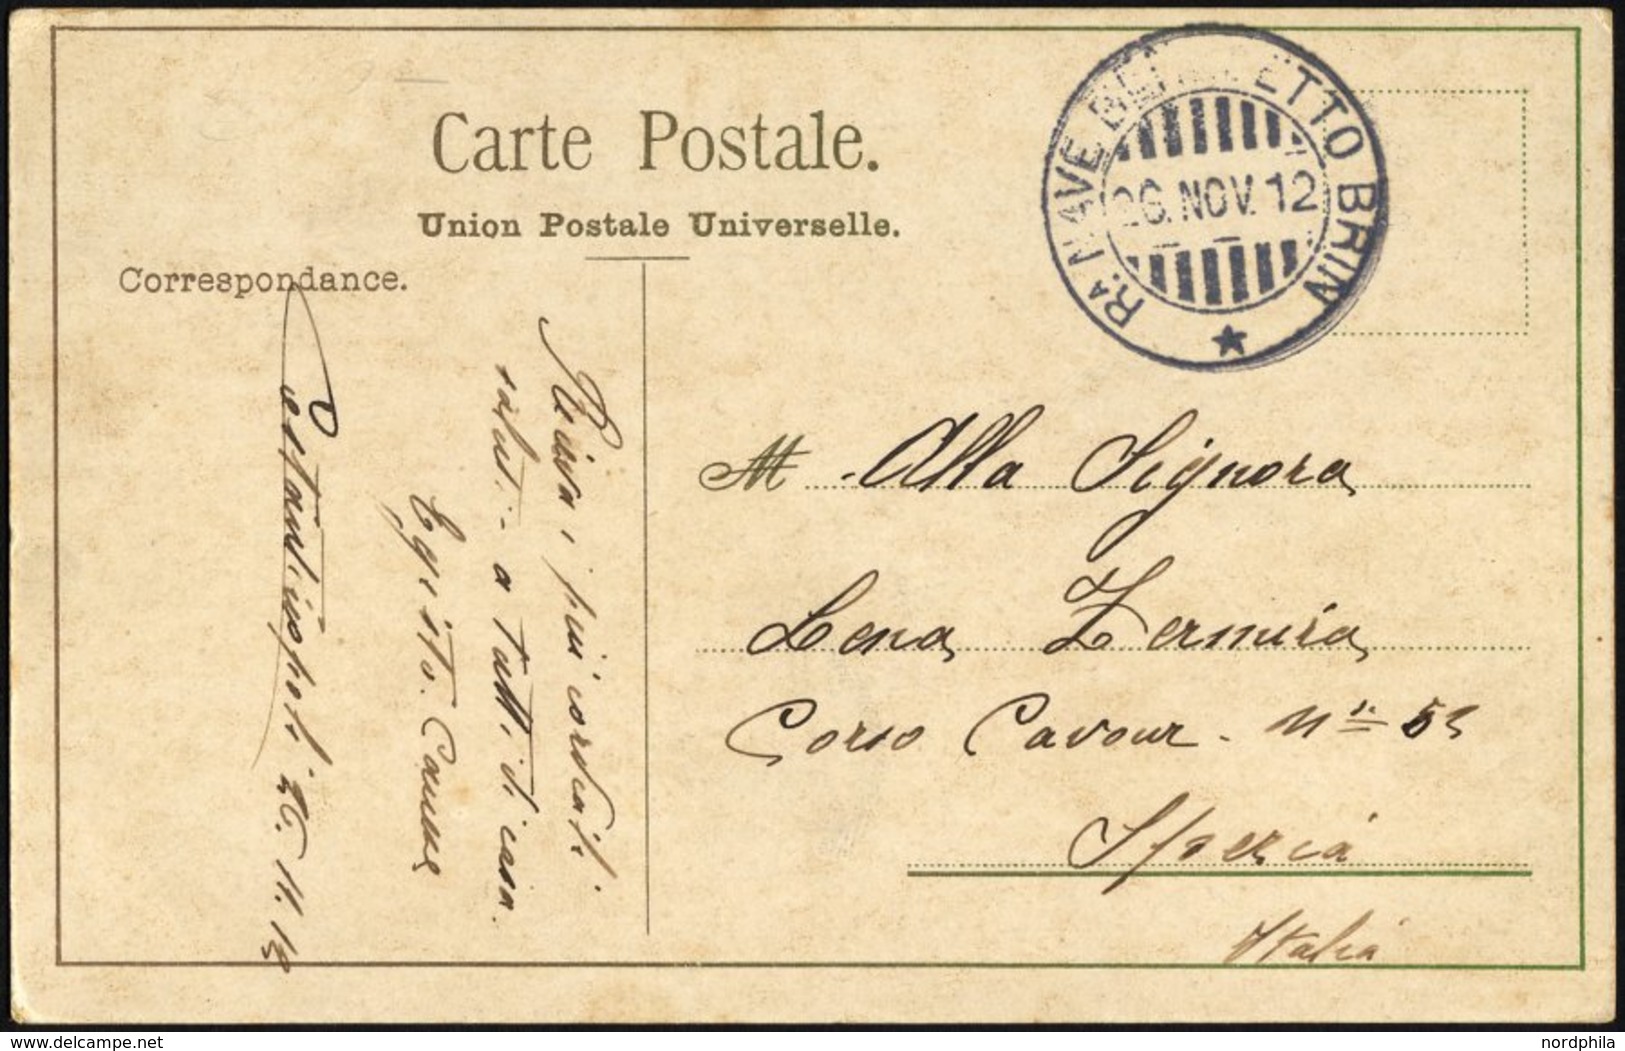 Carte Postale.
Union Postale Universelle.
Correspondance.
Rᴬ. NAVE BE ETTO BRIN
26. NOV. 12
Costantinopoli 26. 11. 12
i più cordiali
saluti - a tutti di casa.
Egisto
M. Alla Signora
Lena
Corso Cavour. Nº 53
Spezia
Italia
delcampe.net
nordphila